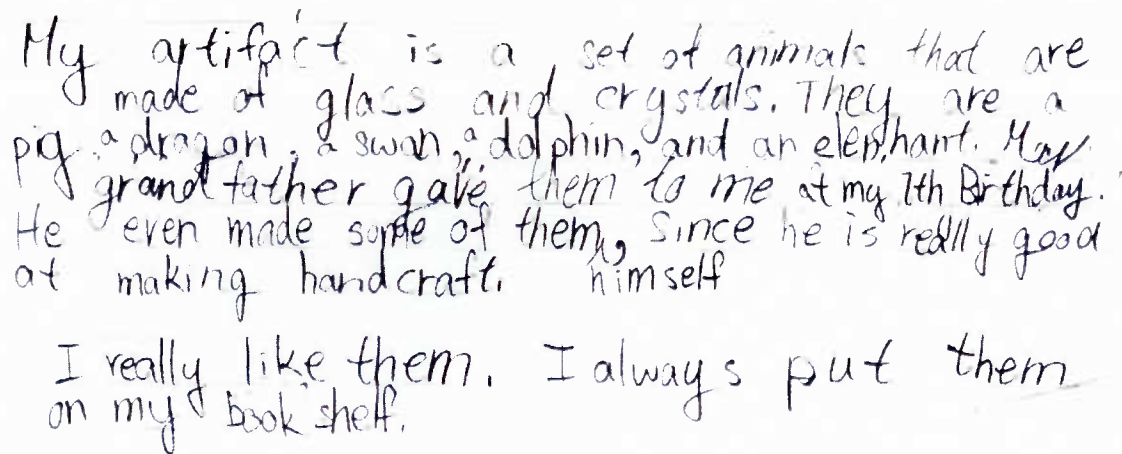 My artifact is a set of animals that are
made of glass and crystals. They are a
pig, a dragon, a swan, a dolphin, and an elephant. My
grandfather gave them to me at my 7th Birthday.
He even made some of them, since he is really good
at making handcraft. himself
I really like them. I always put them
on my book shelf.